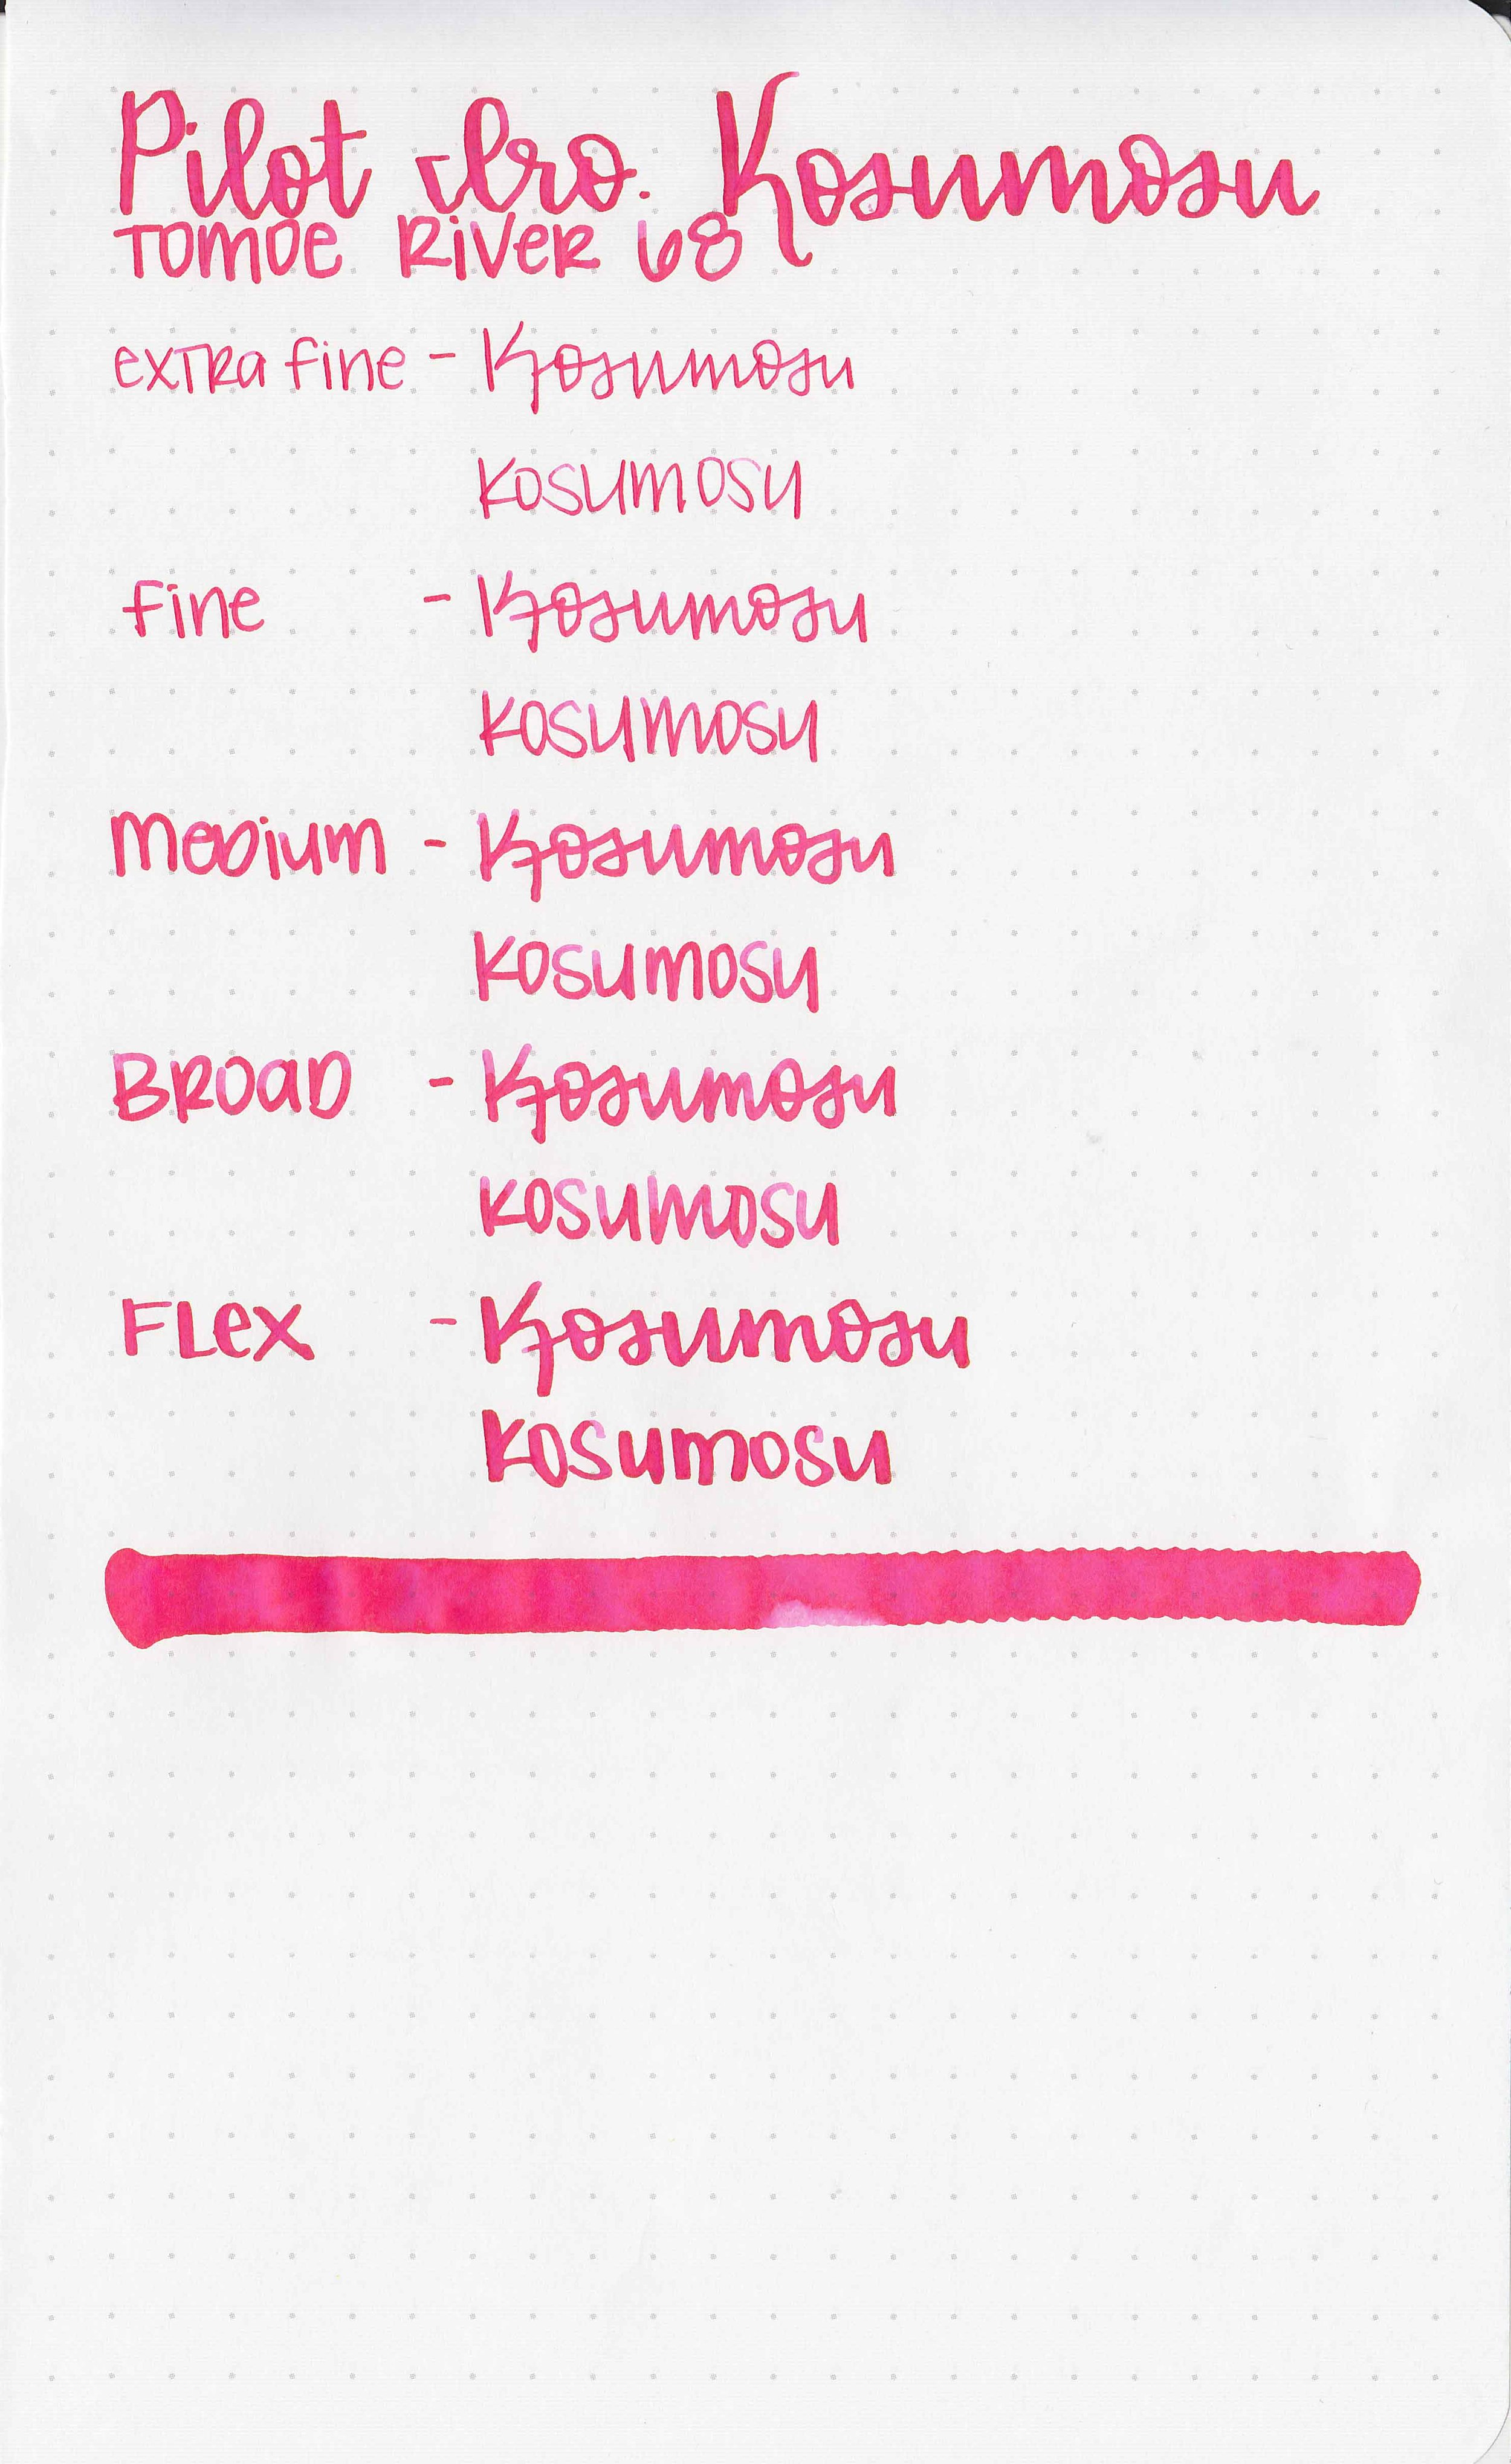 Pilot Iro. Kosumosu
Tomoe River 68
extra fine - Kosumosu
Kosumosu
Fine - Kosumosu
Kosumosu
Medium - Kosumosu
Kosumosu
Broad - Kosumosu
Kosumosu
Flex - Kosumosu
Kosumosu